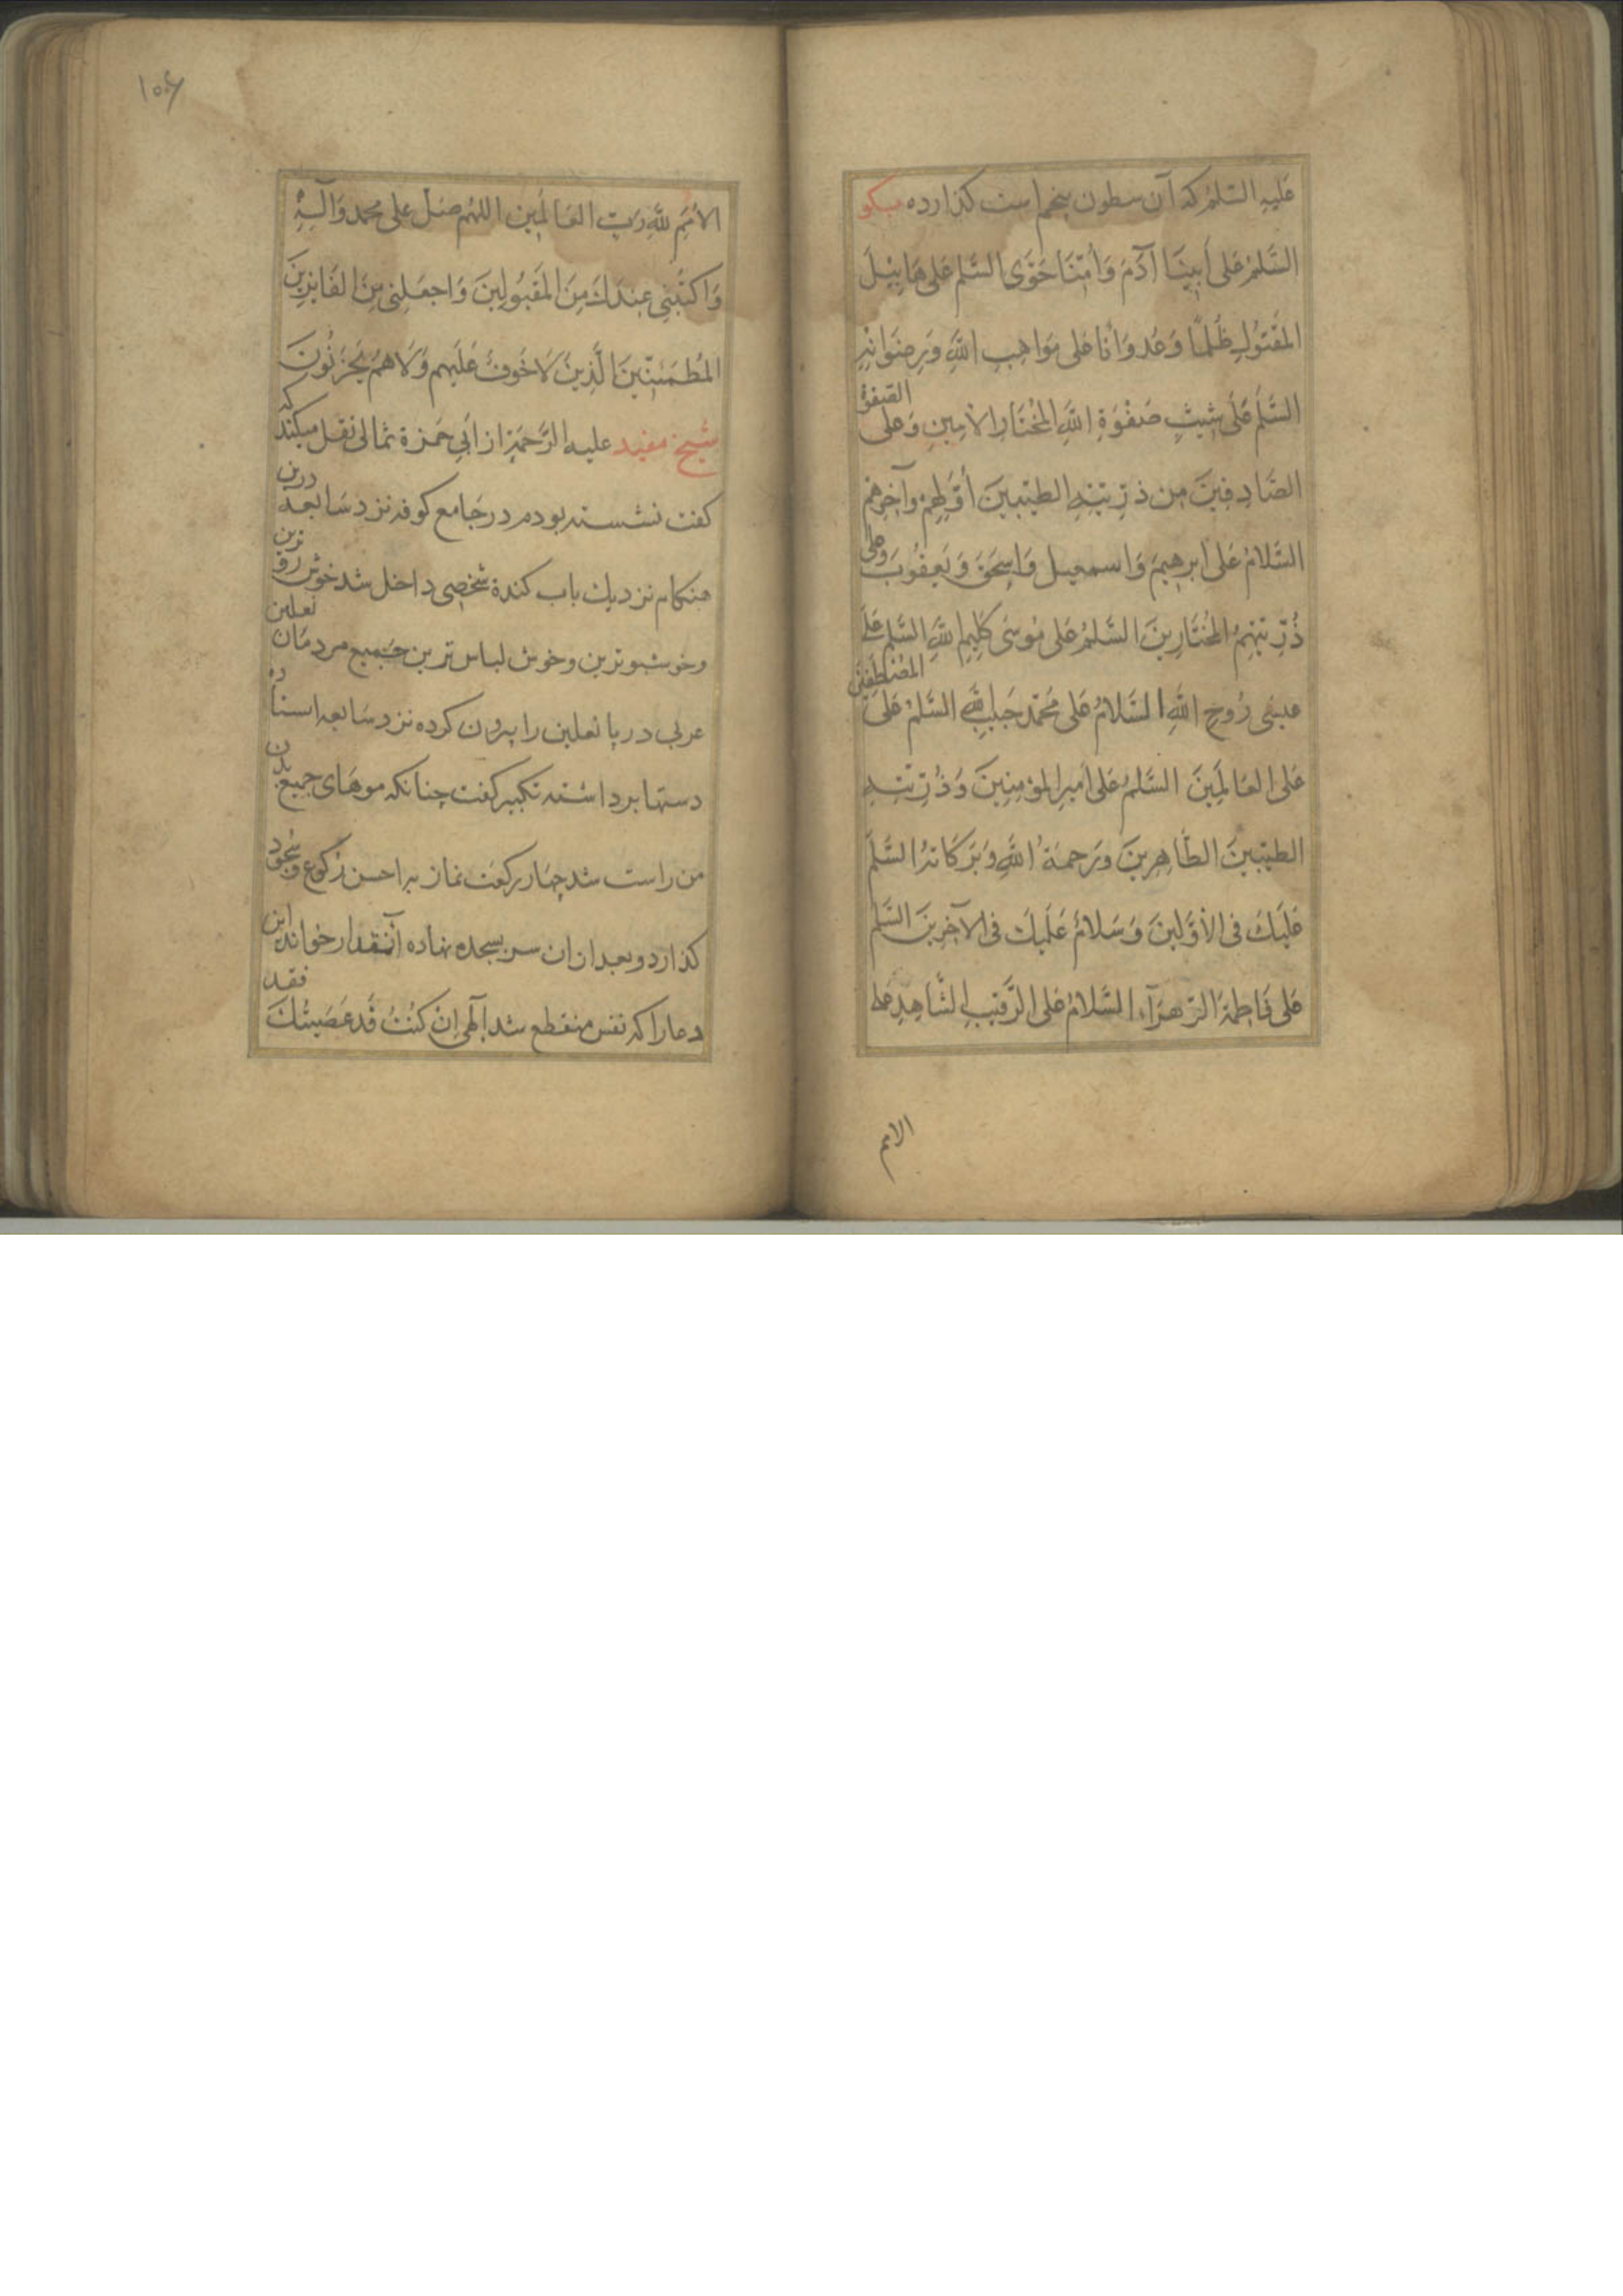 عَلَيهِ السَّلمُ که آن سطون پنجم است کذارده میکو
السَّلمُ عَلى أَبِينَا آدَمَ وَأُمِّنَا حَوَّى السَّلم عَلى هَابِيْلَ
المَقْتُولِ ظُلمًا وَعُدوَانًا عَلى مَوَاهِبِ اللهِ وَرِضوَانِهِ
السَّلَم عَلَى شِيثٍ صَفْوَةِ اللهِ المُخْتَارِ الأمِينِ وَعَلى الصَّفوَةِ
الصَّادِقِينَ مِن ذرِّيَّتِهِ الطيِّبِينَ أوَّلِهِمْ وآخِرِهِم
السَّلامُ عَلى ابرهِيمَ وَاسمعيل وَاِسحَقَ وَيَعقُوبَ وعلى
ذُرِّيَّتِهِمُ المُختَارِينَ السَّلمُ عَلى مُوسَى كَلِيمِ اللهِ السَّلم عَلَى
عيسَى رُوحِ اللهِ السَّلامُ عَلى مُحَمَّد حَبِيبِ اللهِ السَّلمُ عَلَى المُصْطَفَيْنَ
عَلى العَالَمِينَ السَّلمُ عَلى امِيرِ المؤمِنِينَ وَذُرِّيَّتِهِ
الطيِّبينَ الطَّاهِرِينَ وَرَحمَةُ اللهِ وَبَرَكَاتُهُ السَّلَم
عَلَيكَ فى الأوَّلِينَ وَسَلامٌ عَلَيكَ فى الآخِرِينَ السَّلم
عَلى فَاطِمَةَ الزَّهرَآءِ السَّلامُ عَلى الرَّقِيبِ الشَّاهِدِ عَلى
الامم
١٠۶
الأُمَمِ للهِ رَبِّ العَالَمِين اللهُم صَل على محمد وَآلِهِ
وَاكتُبنِى عِندَكَ مِنَ المَقبُولِينَ وَاجعَلنِى مِنَ الفَايِزِينَ
المُطمَئِنِّينَ الَّذِينَ لاَخَوفٌ عَلَيهِم وَلاَ هُم يَحزَنُونَ
شیخ مفید علیه الرَّحمَة از اَبِى حَمزة ثمالى نقل میکند که
کفت نشسته بودم در جامع کوفه نزد سَابعه درین
هنکام نزدیك باب کندة شخصى داخل شد خوش رو ترین
وخوشبوترین وخوش لباس ترین جمیع مردمان نعلین
عربى در پا نعلین را بیرون کرده نزد سَابعه استاده
دستها برداشته تکبیر کفت چنانکه موهَاى جمیع بدن
من راست شد چهار رکعت نماز براحسن رکوع وسجود
کذارد وبعد ازان سر بسجده نهاده آنمقدار خواند این
دعا را که نفس منقطع شد اِلٰهى اِن کُنْتُ قَد عَصَيتُكَ فقد